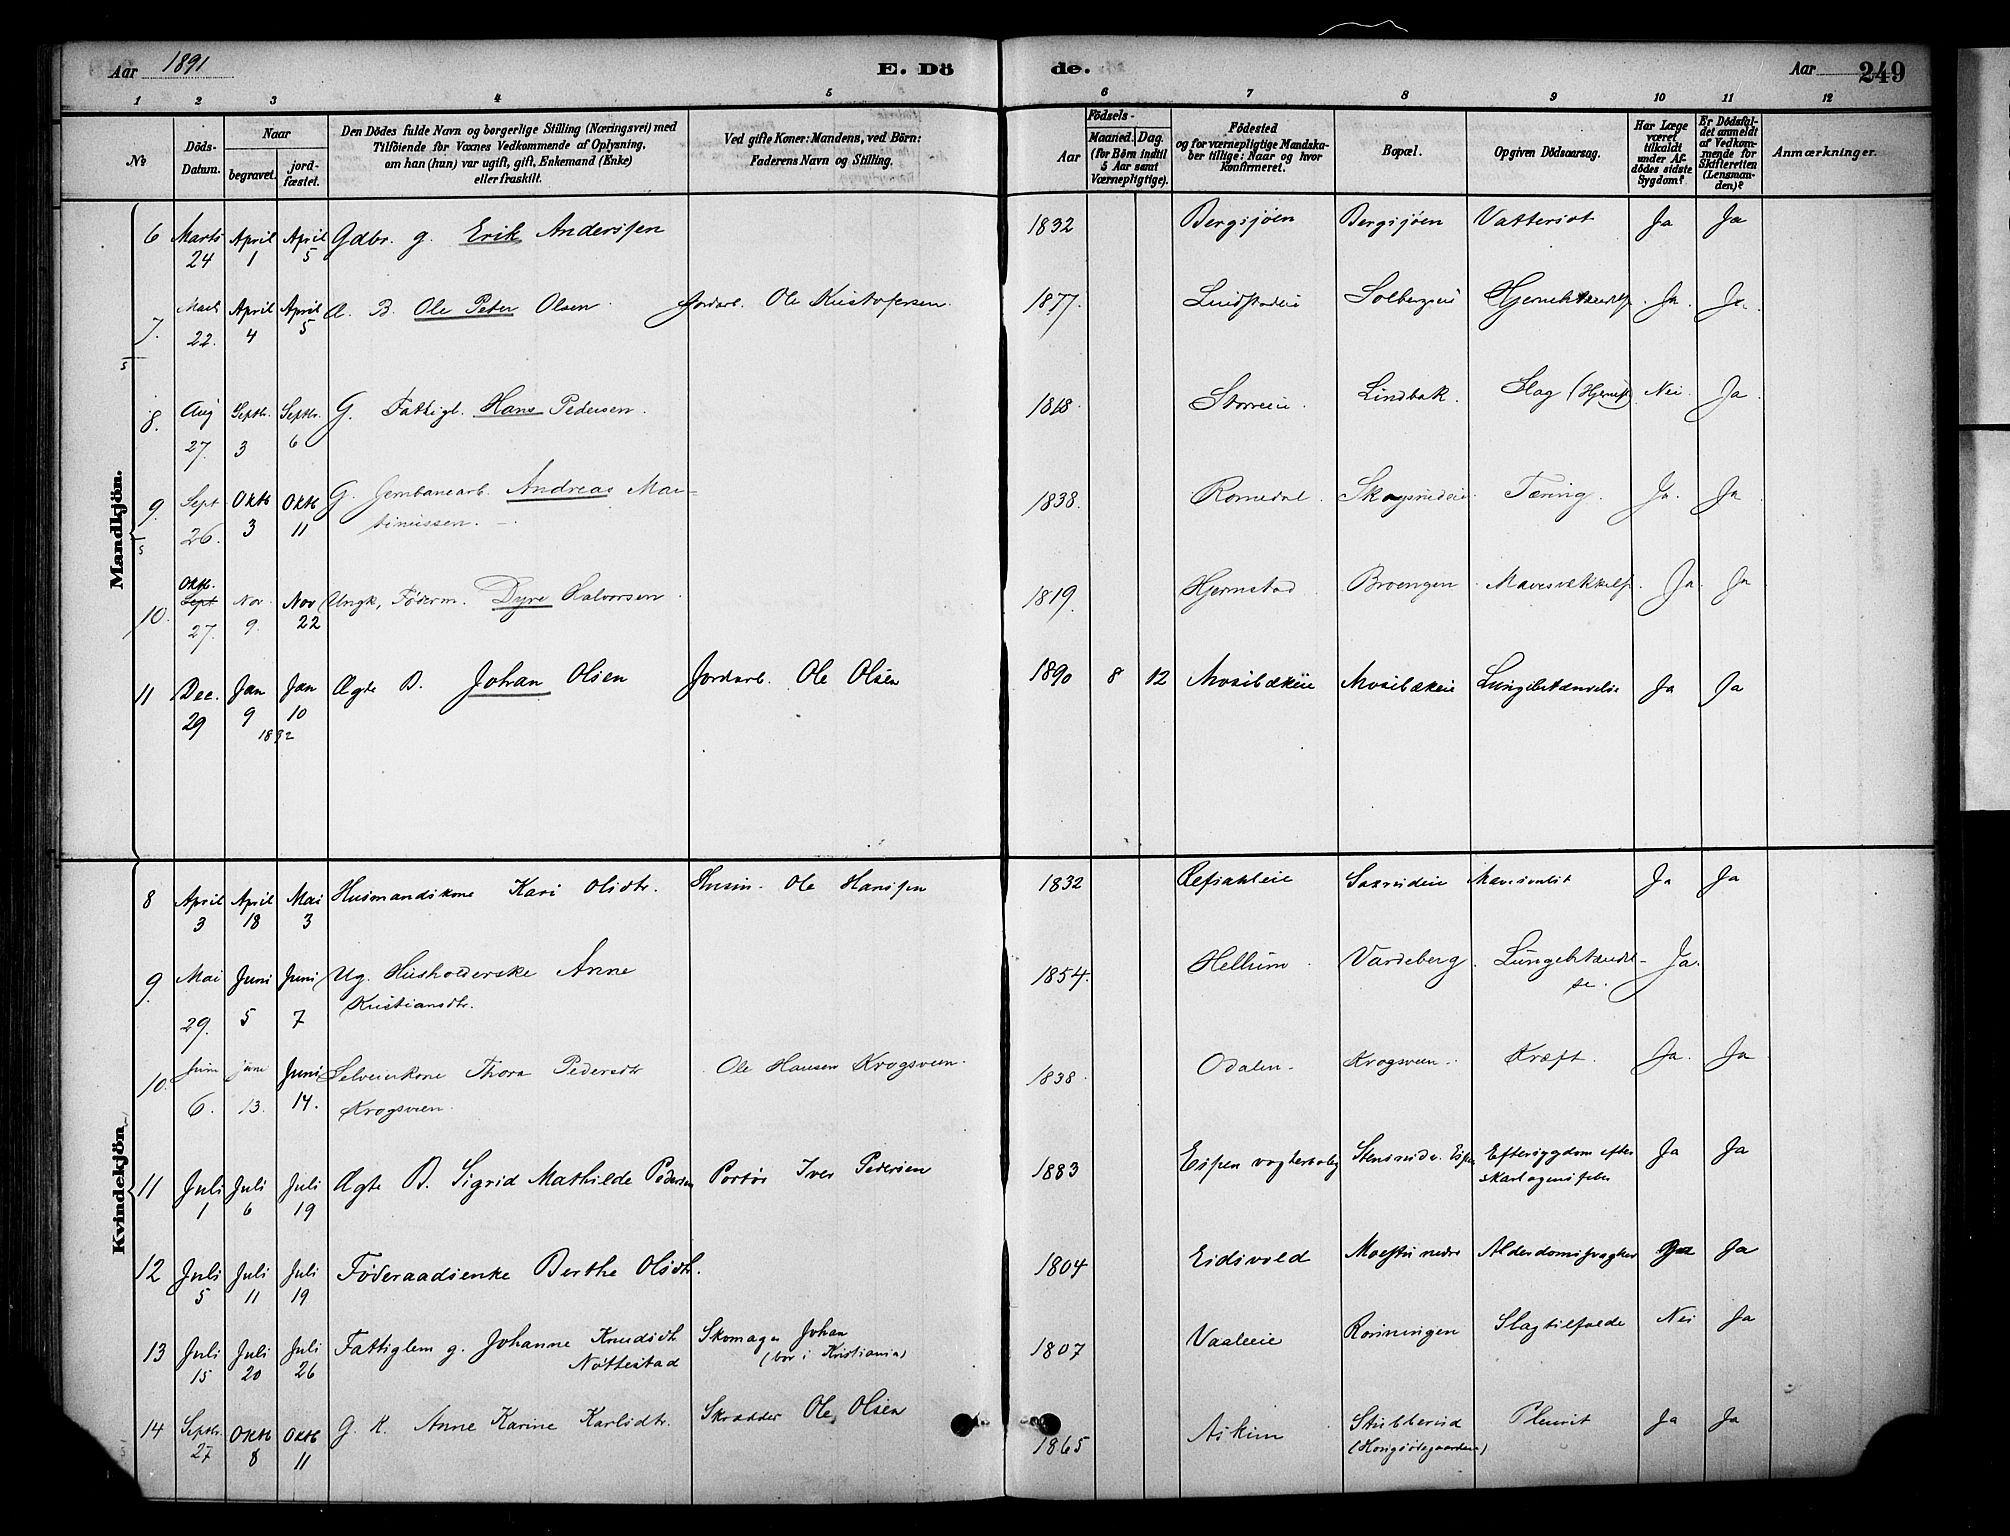 Aar 1891
E. Dö
de.
Aar 249
1 2 3 4 5 6 7 8 9 10 11 12
No
Döds-
Datum.
Naar
begravet.
jord-
fæstet.
Den Dödes fulde Navn og borgerlige Stilling (Næringsvei) med
Tilföiende for Voxnes Vedkommende af Oplysning,
om han (hun) var ugift, gift, Enkemand (Enke)
eller fraskilt.
Ved gifte Koner: Mandens, ved Börn:
Faderens Navn og Stilling.
Födsels-
Aar
Maaned. Dag.
(for Børn indtil
5 Aar samt
Værnepligtige).
Födested
og for værnepligtige Mandska-
ber tillige: Naar og hvor
konfirmeret.
Bopæl.
Opgiven Dödsaarsag.
Har Læge
været
tilkaldt
under Af-
dödes sidste
Sygdom?
Er Dödsfal-
det anmeldt
af Vedkom-
mende for
Skifteretten
(Lensman-
den)?
Anmærkninger.
Mandkjön.
6 Marts April April Gdbr. g. Erik Andersen 1832 Bergsjöen Bergsjöen Vattersot Ja Ja
24 1 5
7. Marts April April A. B. Ole Peter Olsen Jordarb. Ole Kristofersen. 1877. Solbergeie Ja. Ja.
22. 4 5
5
8. Aug Septr. Septr. G. Fattigl. Hans Pedersen. Lindbak. Slag Nei. Ja.
27. 3 6
9. Sept Oktb Oktb G. Jernbanearb. Andreas Mar- 1838. Romedal. Skogsrudeie. Tæring. Ja. Ja
26. 3 11 tinussen.
5
Oktb.
10. Sept Nov. Nov Ungk, Föderm. Dyre Halvorsen 1819. Hjernstad Broengen Mavesvækkelse Ja. Ja
27. 9. 22
11 Dec. Jan Jan Ægte B. Johan Olsen Jordarb. Ole Olsen 1890 8 12 Mosibækeie Mosibækeie Lungebetændelse Ja Ja
29 9 10
1892
Kvindekjön.
8 April April Mai Husmandskone Kari Olsdtr. Husm. Ole Hanssen 1832 Ja Ja
3 18 3
9. Mai Juni Juni Ug. Husholderske Anne 1854. Hellum Vardeberg Lungebetændel- Ja.
Kristiansdtr. se.
29. 5 7
10. Juni Juni Juni Selveierkone Thora Pedersdtr Ole Hansen Krogsveen. 1838. Odalen. Krogsveen. Kræft. Ja. Ja
6. 13. 14. Krogsveen.
11 Juli Juli Juli Ægte B. Sigrid Mathilde Pedersen Portör Iver Pedersen 1883 Espen vogterbolig Stensrudv. Espen Eftersygdom efter Ja Ja
1 6 19 skarlagensfeber
12 Juli Juli Juli Föderaadsenke Berthe Olsdtr. 1804 Eidsvold Moestu nedre Alderdomssvaghed Ja Ja
5 11 19
13 Juli Juli Juli Fattiglem g. Johanne Knudsdtr Skomager Johan 1807 Vaaleeie Rönningen Slagtilfælde Nei Ja
15 20 26 Nöttestad (bor i Kristiania)
14 Septbr. Oktb Oktb G. K. Anne Karine Karlsdtr. Skrædder Ole Olsen 1865 Askim Stubberud Pleurit Ja Ja
27 8 11